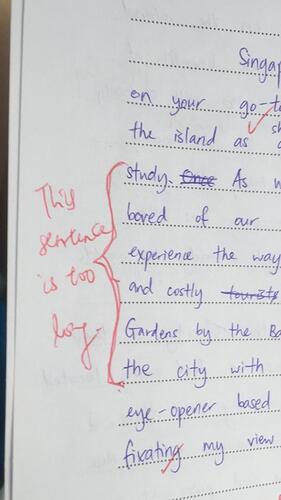 Singap
on your go-t
the island as
study. Once As w
bored of our
experience the way
and costly tourists
Gardens by the Ba
the city with
eye-opener based
fixating my view
This
sentence
is too
long.